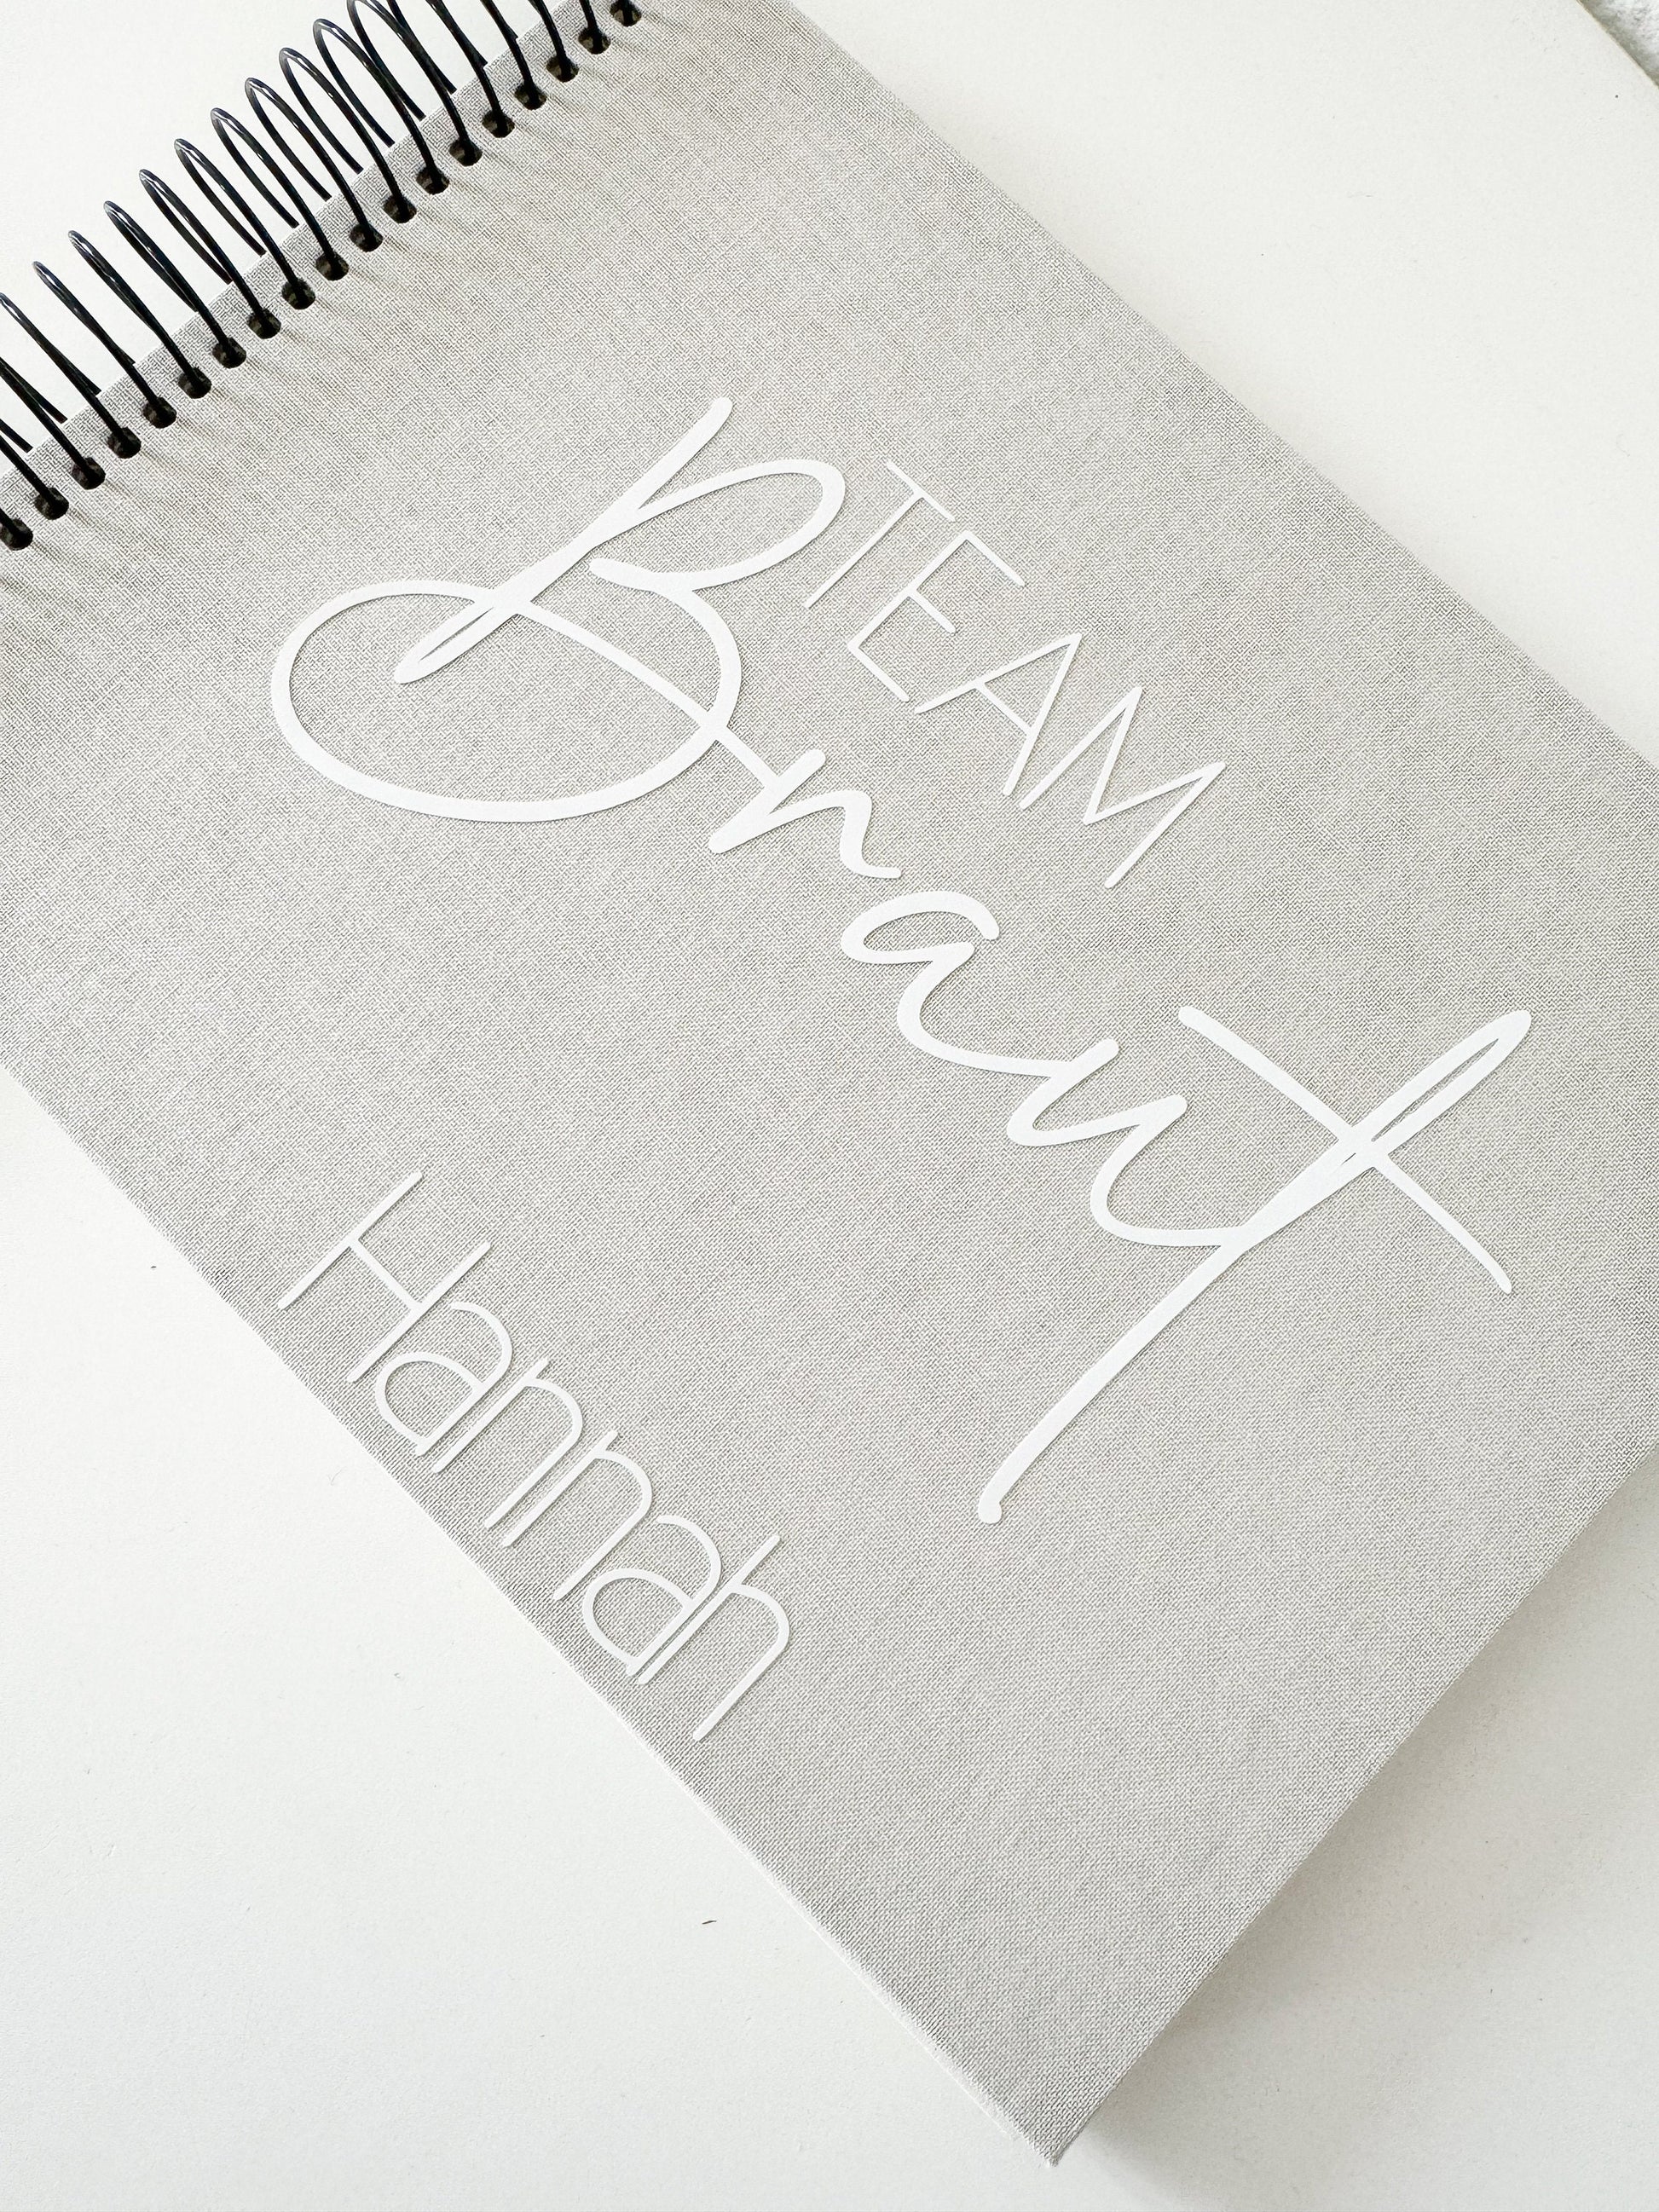 TEAM
Braut
Hannah